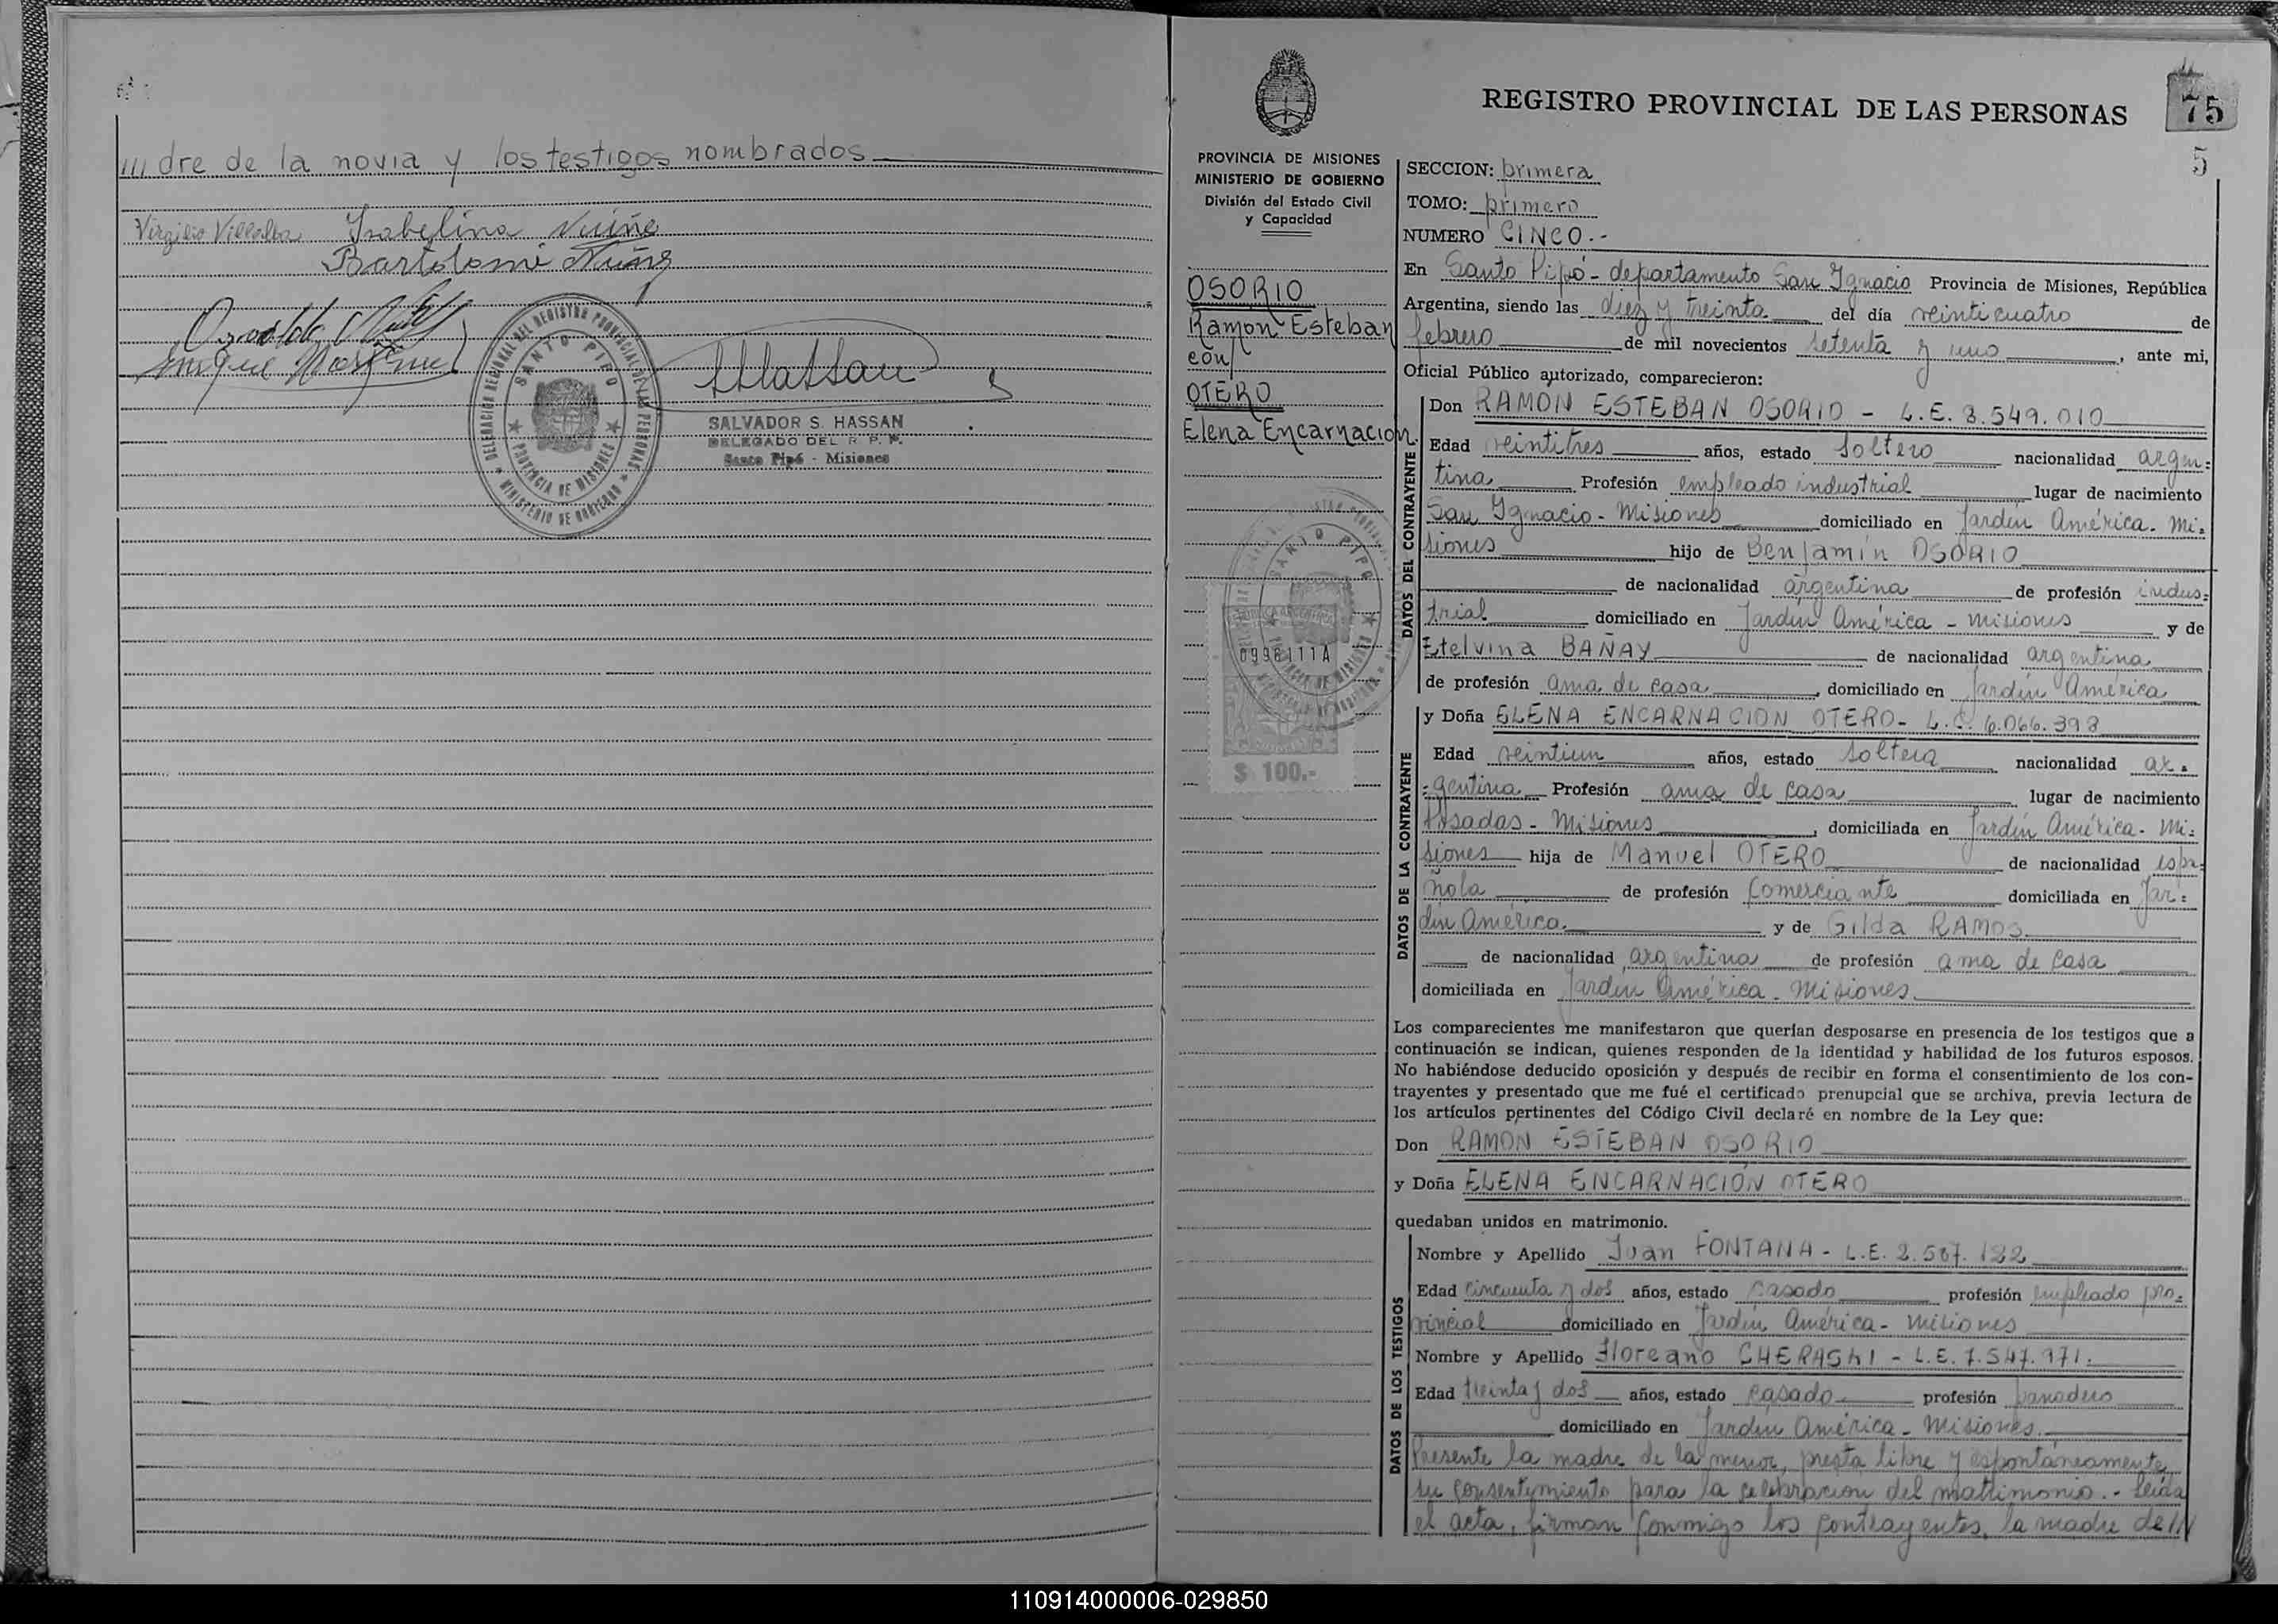 /// dre de la novia y los testigos nombrados
Virgilio Villalba Isabelina Nuñe
Bartolomé Nuñez
Osvaldo
Enrique
DELEGACION REGIONAL DEL REGISTRO PROVINCIAL DE LAS PERSONAS
SANTO PIPO
PROVINCIA DE MISIONES
MINISTERIO DE GOBIERNO
SHassan
SALVADOR S. HASSAN
DELEGADO DEL R. P. P.
Santo Pipó - Misiones
REGISTRO PROVINCIAL DE LAS PERSONAS
75
5
PROVINCIA DE MISIONES
MINISTERIO DE GOBIERNO
División del Estado Civil
y Capacidad
OSORIO
Ramon Esteban
con
OTERO
Elena Encarnacion
SANTO PIPO
0996111A
$ 100.-
SECCION: primera
TOMO: primero
NUMERO CINCO.-
En Santo Pipó - departamento San Ignacio Provincia de Misiones, República
Argentina, siendo las diez y treinta del día veinticuatro de
febrero de mil novecientos setenta y uno, ante mi,
Oficial Público autorizado, comparecieron:
DATOS DEL CONTRAYENTE
Don RAMON ESTEBAN OSORIO - L.E. 8.549.010
Edad veintitres años, estado soltero nacionalidad argen=
tina Profesión empleado industrial lugar de nacimiento
San Ignacio - Misiones domiciliado en Jardín América. Mi=
siones hijo de Benjamín OSORIO
de nacionalidad argentina de profesión indus=
trial domiciliado en Jardín América - misiones y de
Etelvina BAÑAY de nacionalidad argentina
de profesión ama de casa, domiciliado en Jardín América
DATOS DE LA CONTRAYENTE
y Doña ELENA ENCARNACION OTERO - L.C. 6.066.398
Edad veintiun años, estado soltera nacionalidad ar=
=gentina Profesión ama de casa lugar de nacimiento
Posadas - Misiones, domiciliada en Jardín América - Mi=
siones hija de Manuel OTERO de nacionalidad espa=
ñola de profesión Comerciante domiciliada en Jar=
dín América. y de Gilda RAMOS
de nacionalidad argentina de profesión ama de casa
domiciliada en Jardín América - Misiones.
Los comparecientes me manifestaron que querían desposarse en presencia de los testigos que a
continuación se indican, quienes responden de la identidad y habilidad de los futuros esposos.
No habiéndose deducido oposición y después de recibir en forma el consentimiento de los con-
trayentes y presentado que me fué el certificado prenupcial que se archiva, previa lectura de
los artículos pertinentes del Código Civil declaré en nombre de la Ley que:
Don RAMON ESTEBAN OSORIO
y Doña ELENA ENCARNACIÓN OTERO
quedaban unidos en matrimonio.
DATOS DE LOS TESTIGOS
Nombre y Apellido Juan FONTANA - L.E. 2.587.122
Edad cincuenta y dos años, estado casado profesión empleado pro=
vincial domiciliado en Jardín América - misiones
Nombre y Apellido Floreano CHERASKI - L.E. 7.547.971.
Edad treinta y dos años, estado casado profesión panadero
domiciliado en Jardín América - Misiones.
Presente la madre de la menor, presta libre y espontáneamente
su consentimiento para la celebración del matrimonio. - Leída
el acta, firman conmigo los contrayentes, la madre de ///
110914000006-029850